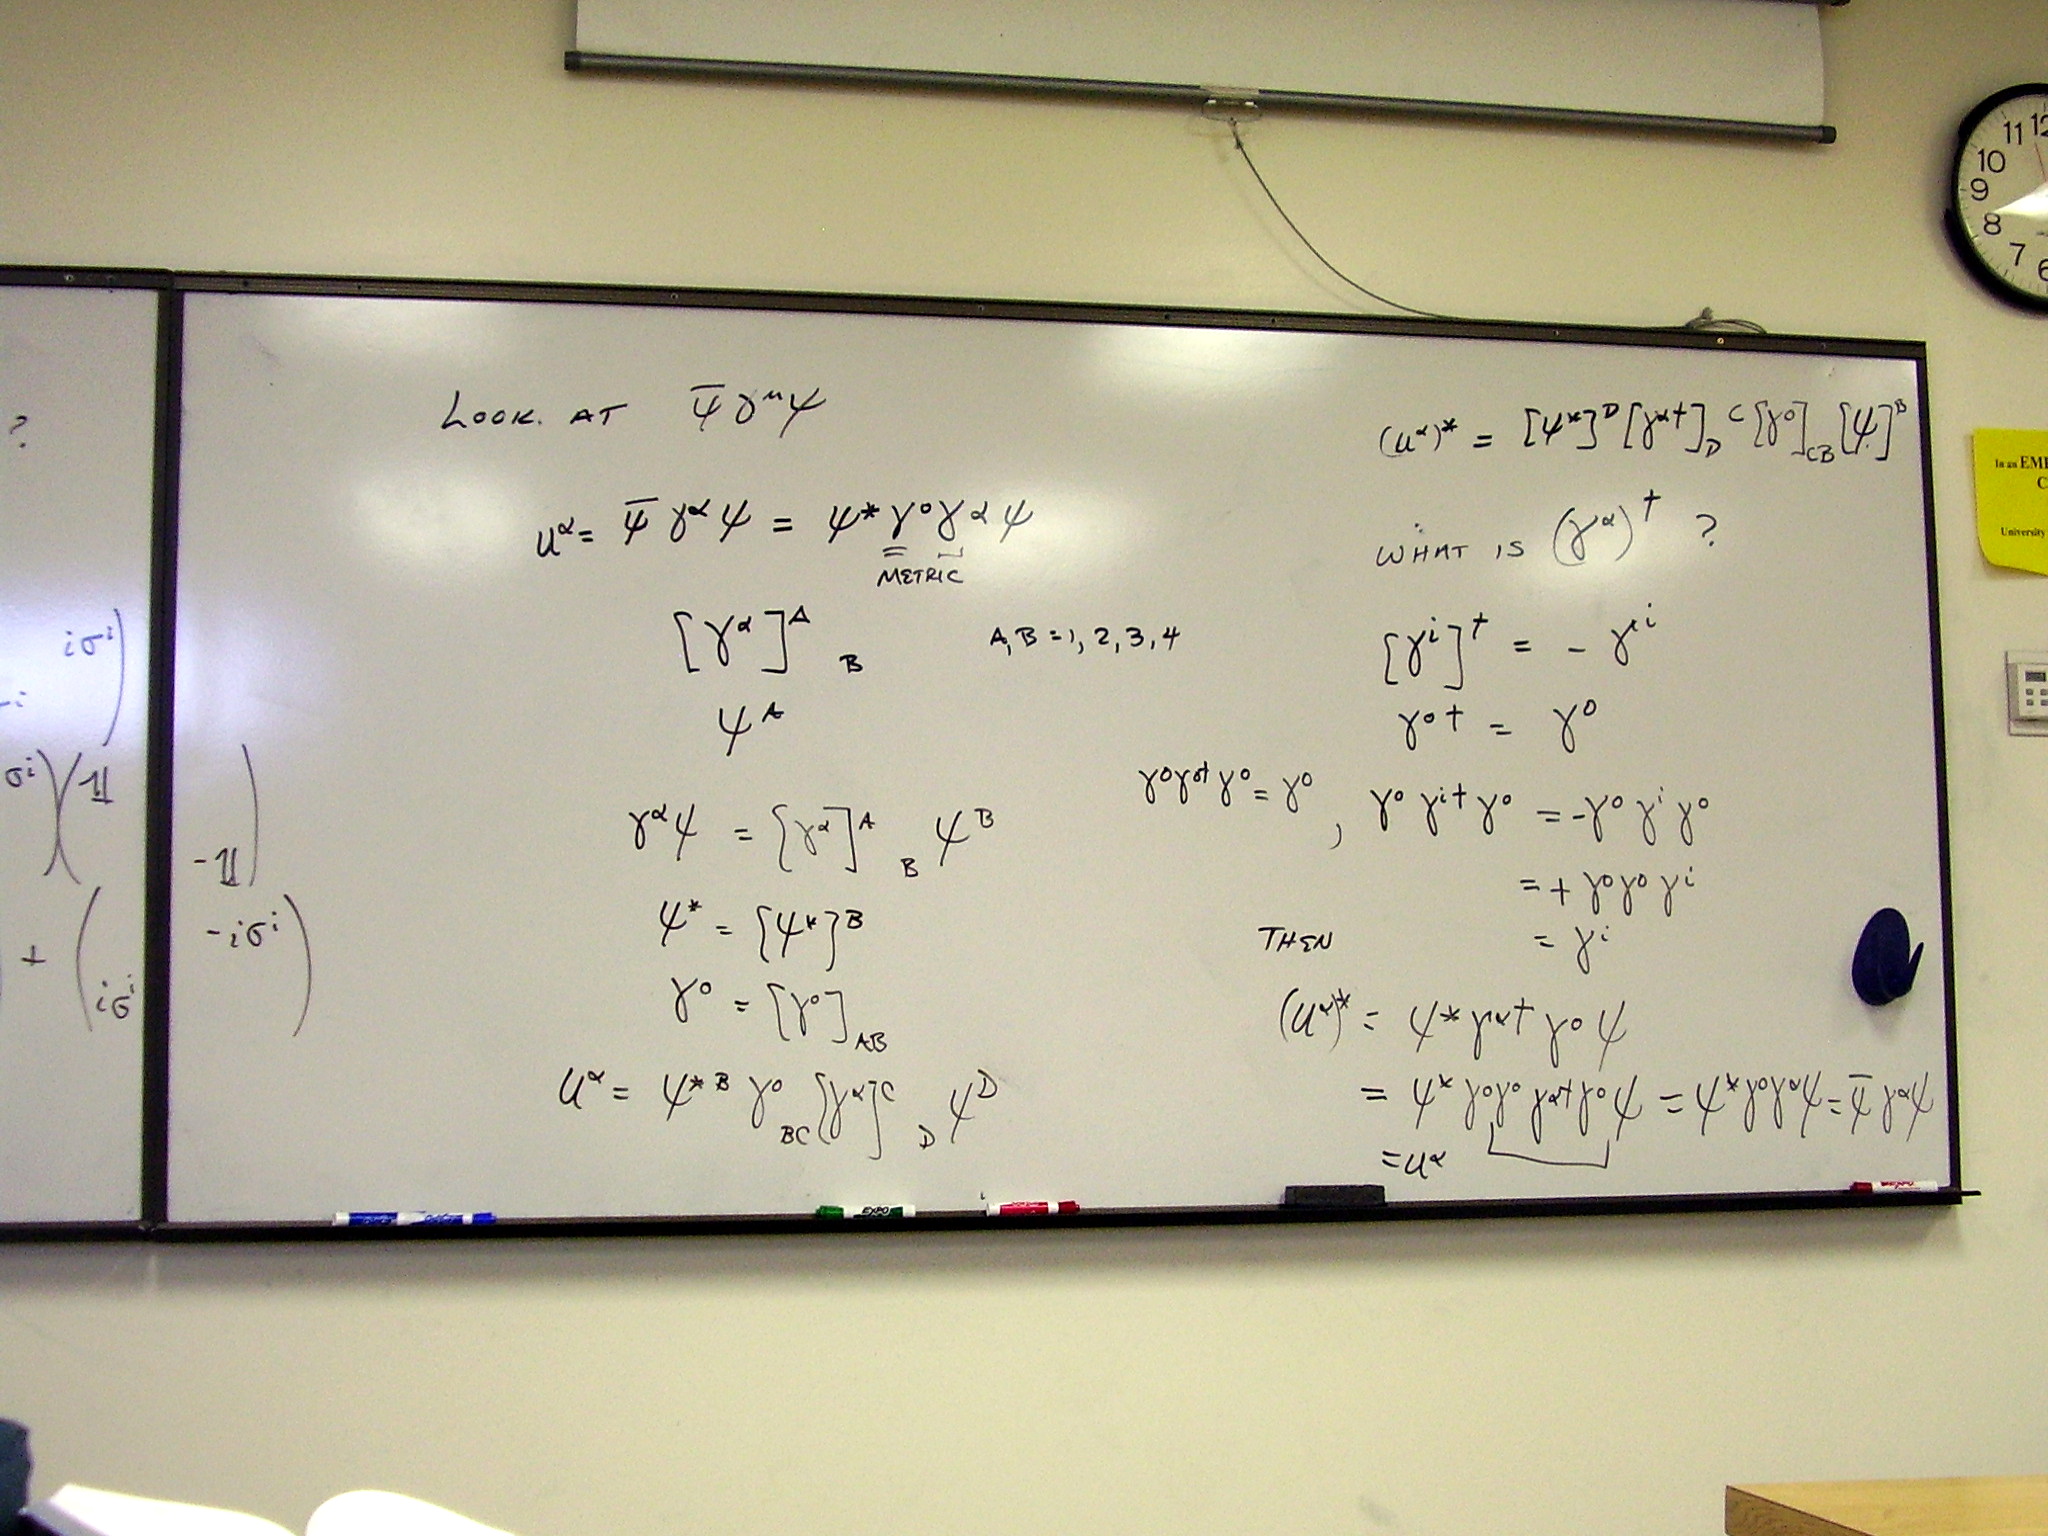 ?
iσⁱ
-i
σⁱ)(𝟙
-𝟙)
+ (
-iσⁱ
iσⁱ
LOOK AT ψ̄ γ^μ ψ
u^α = ψ̄ γ^α ψ = ψ* γ⁰ γ^α ψ
METRIC
[γ^α]^A_B A, B = 1, 2, 3, 4
ψ^A
γ^α ψ = [γ^α]^A_B ψ^B
ψ* = [ψ*]^B
γ⁰ = [γ⁰]_AB
u^α = ψ*^B γ⁰_BC [γ^α]^C_D ψ^D
(u^α)* = [ψ*]^D [γ^α†]_D^C [γ⁰]_CB [ψ]^B
WHAT IS (γ^α)† ?
[γⁱ]† = - γⁱ
γ⁰† = γ⁰
γ⁰γ⁰†γ⁰ = γ⁰, γ⁰ γⁱ† γ⁰ = -γ⁰ γⁱ γ⁰
= + γ⁰γ⁰ γⁱ
= γⁱ
THEN
(u^α)* = ψ* γ^α† γ⁰ ψ
= ψ* γ⁰γ⁰ γ^α†γ⁰ ψ = ψ*γ⁰γ^αψ = ψ̄ γ^αψ
= u^α
11 12
10
9
8
7
6
In an EME
C
University
EXPO
EXPO